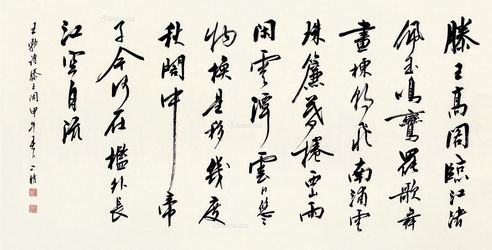 滕王高閣臨江渚
佩玉鳴鸞罷歌舞
畫棟朝飛南浦雲
珠簾暮捲西山雨
閑雲潭影日悠悠
物換星移幾度
秋閣中帝
子今何在檻外長
江空自流
王勃詩滕王閣甲午春